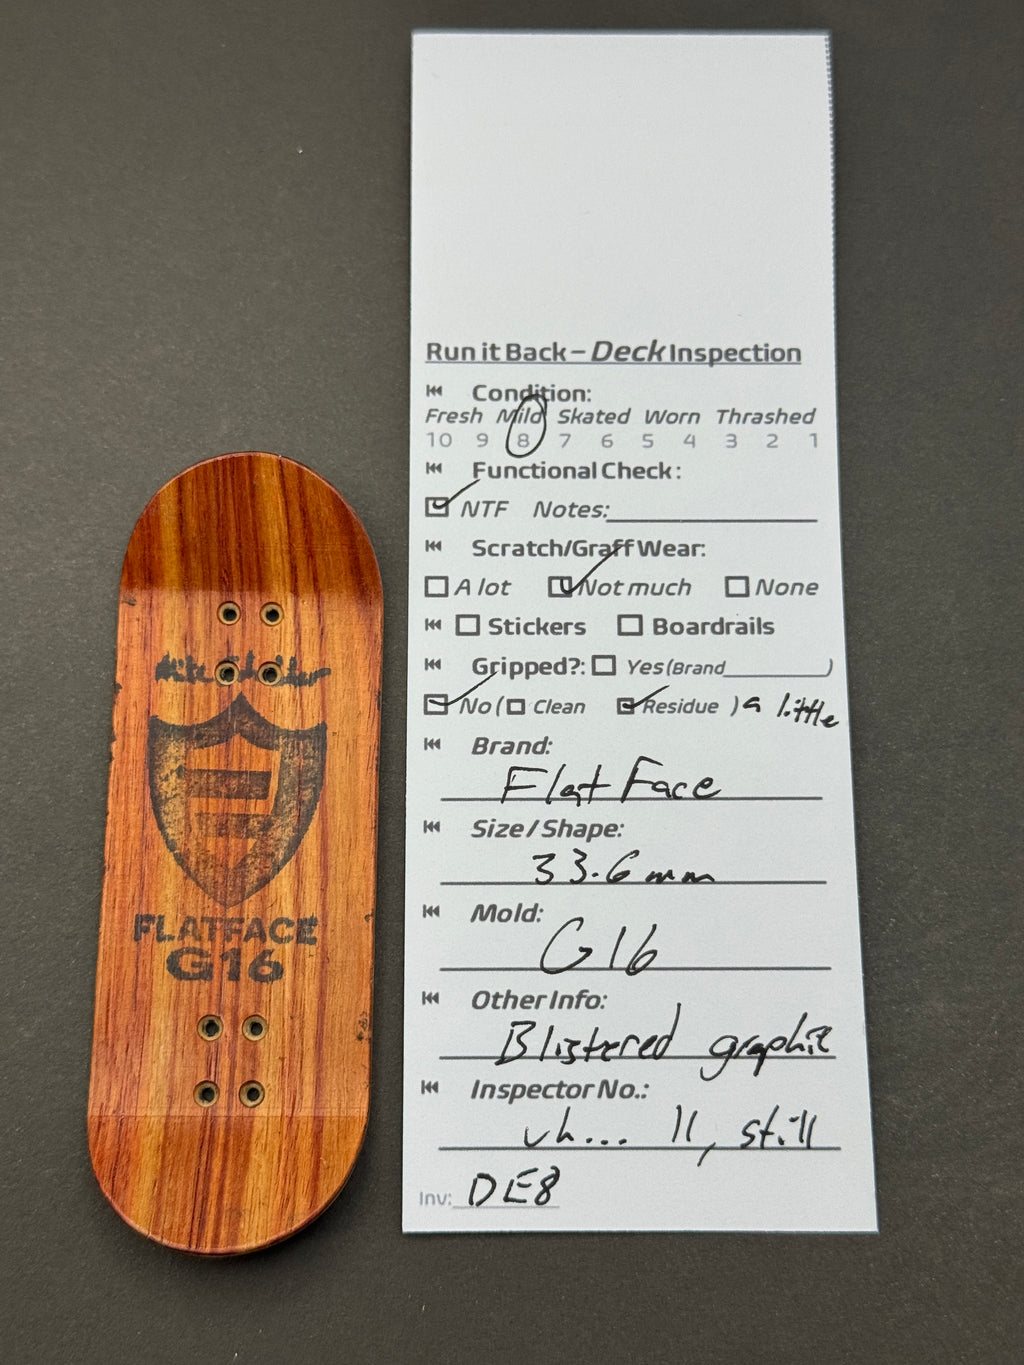 Run it Back – Deck Inspection
Condition:
Fresh Mild Skated Worn Thrashed
10 9 8 7 6 5 4 3 2 1
Functional Check:
NTF Notes:
Scratch/Graff Wear:
A lot Not much None
Stickers Boardrails
Gripped?: Yes (Brand )
No ( Clean Residue ) a little
Brand:
FlatFace
Size / Shape:
33.6mm
Mold:
G16
Other Info:
Blistered graphic
Inspector No.:
uh... 11, still
Inv: DE8
FLATFACE
G16